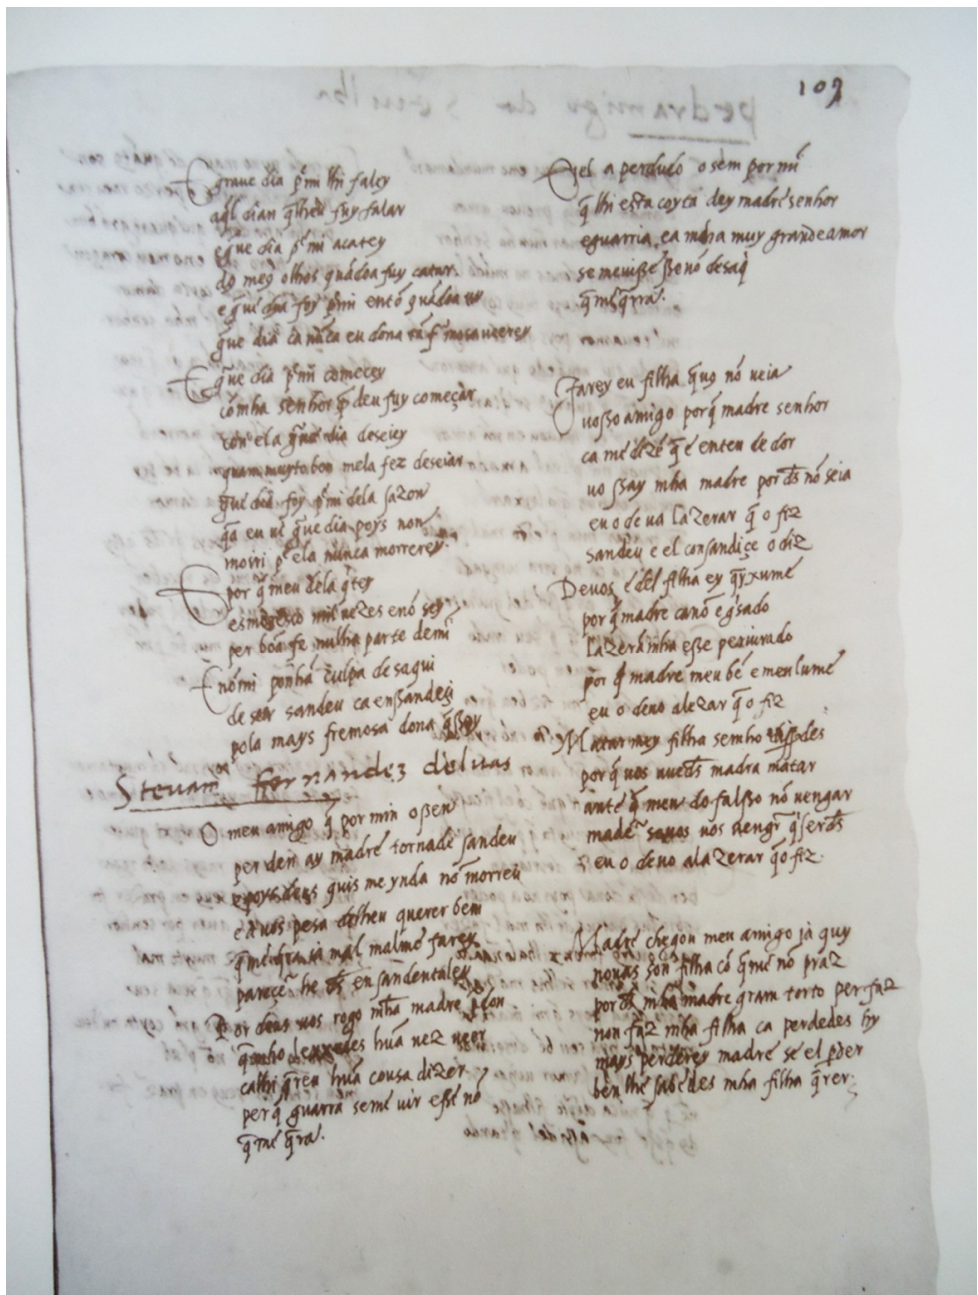 109
graue dia p̃mi lhi faley
aq̃l dian q̃lheu fuy falar
e q̃ue dia p̃mi acatey
do me9 olhos quãdoa fuy catar
e q̃ue dia foy p̃mi entõ quãdoa
q̃ue dia ca nũca eu dona tã f̃mosa ueerey
E q̃ue dia p̃mi comecey
cõ mha senhor q̃ deu fuy começar
con ela q̃ue dia deseiey
quam muyto bon mela fez deseiar
q̃ue dia foy p̃mi dela sazon
q̃a eu ui q̃ue dia poys non
moiri p̃ ela nunca morrerey
E por q̃ meu dela q̃tey
esmoresco mil uezes e nõ sey
per boa fe nulha parte demi
E nõmi ponhã culpa desaqui
de seer sandeu ca enssandeçi
pola mays fremosa dona q̃ssey
Steuam fernandez deluas
O meu amigo q̃ por min o ssen
perden ay madre tornade sandeu
e poys deus quis me ynda nõ morreu
e a uos pesa delheu querer ben
q̃mel q̃rria mal malme farey
pareçẽ he d̃s ensandentalex
Por deus uos rogo mha madre
q̃mho leyxedes hũa uez ueer
calhi q̃reu hũa cousa dizer
per q̃ guarra seme uir esse nõ
q̃mel q̃rra.
E el a perdudo o sem por mĩ
q̃ lhi esta coyta dey madre senhor
e guarria ca mha muy grande amor
se me uisse sse nõ desaq̃
q̃mel q̃rra.
Farey eu filha q̃uo9 nõ ueia
uosso amigo por q̃ madre senhor
ca me dizẽ q̃ é entendedor
uossay mha madre por d̃s nõ seia
eu o deua lazerar q̃ o fiz
sandeu e el con sandiçe o diz
Deuos e del filha ey q̃yxume
por q̃ madre ca nõ e g̃sado
lazerã mha esse periurado
por q̃ madre meu bẽ e meu lume
eu o deuo alezar q̃ o fiz
Matarmey filha se mho dissedes
por q̃ uos auedes madra matar
ante q̃ meu do falsso nõ uengar
madre se uos uos uengr q̃serdes
eu o deuo alazerar q̃o fiz
Madre chegou meu amigo ia quy
nouas son filha cõ q̃me nõ praz
por d̃s mha madre gram torto per faz
non faz mha filha ca perdedes hy
mays perderey madre se el p̃der
ben lhe sabedes mha filha q̃rer